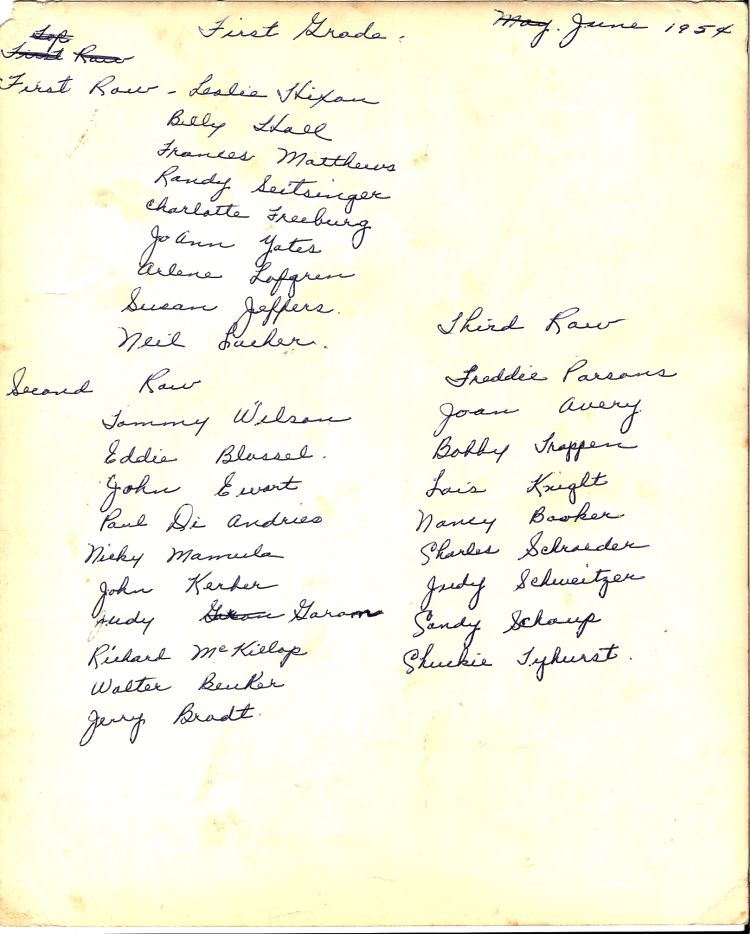 First Grade. May. June 1954
Top
First Row
First Row - Leslie Hixon
Billy Hall
Frances Matthews
Randy Seitsinger
Charlotte Freeburg
JoAnn Yates
Arlene Lofgren
Susan Jeffers.
Neil
Second Row
Tommy Wilson
Eddie Blassel.
John Ewart
Paul Di Andries
Nicky Mamula
John Kerher
Judy Garam
Richard McKillop
Walter Beuker
Jerry Bradt.
Third Row
Freddie Parsons
Joan Avery
Bobby Trappen
Lois Knight
Nancy Booker
Charles Schroeder
Judy Schweitzer
Sandy Schoup
Chuckie Tyhurst.